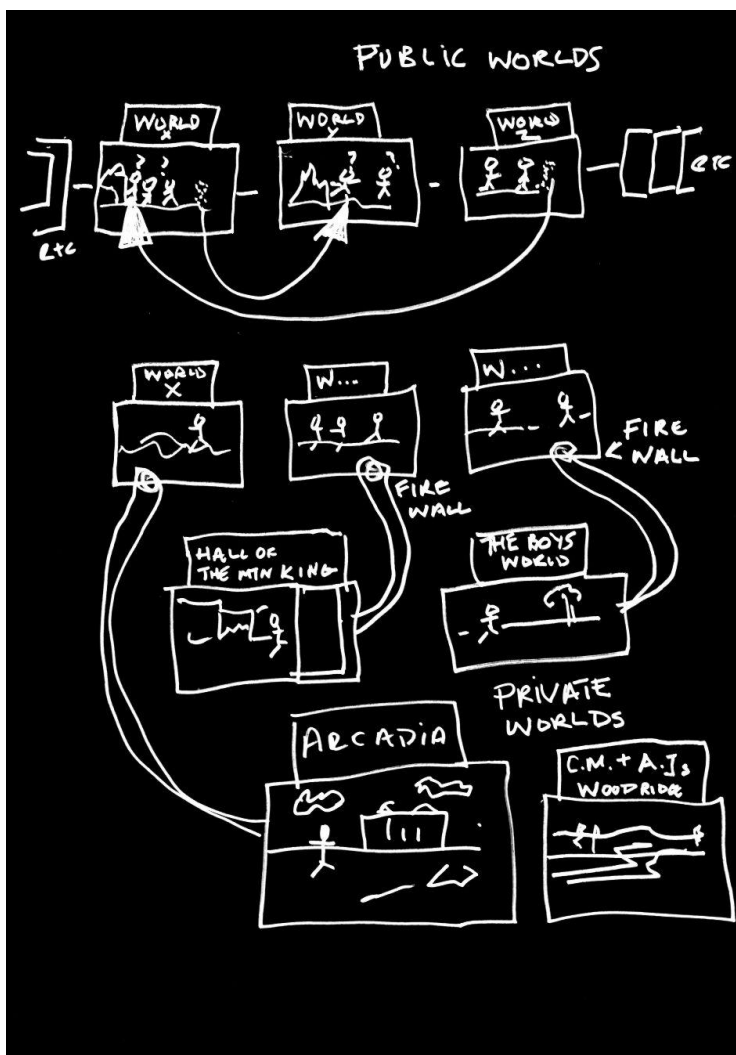 PUBLIC WORLDS
WORLD
X
WORLD
Y
WORLD
Z
ETC
ETC
WORLD
X
W...
W...
FIRE
WALL
FIRE
WALL
HALL OF
THE MTN KING
THE BOYS
WORLD
PRIVATE
WORLDS
ARCADIA
C.M. + A.J.s
WOODRIDGE